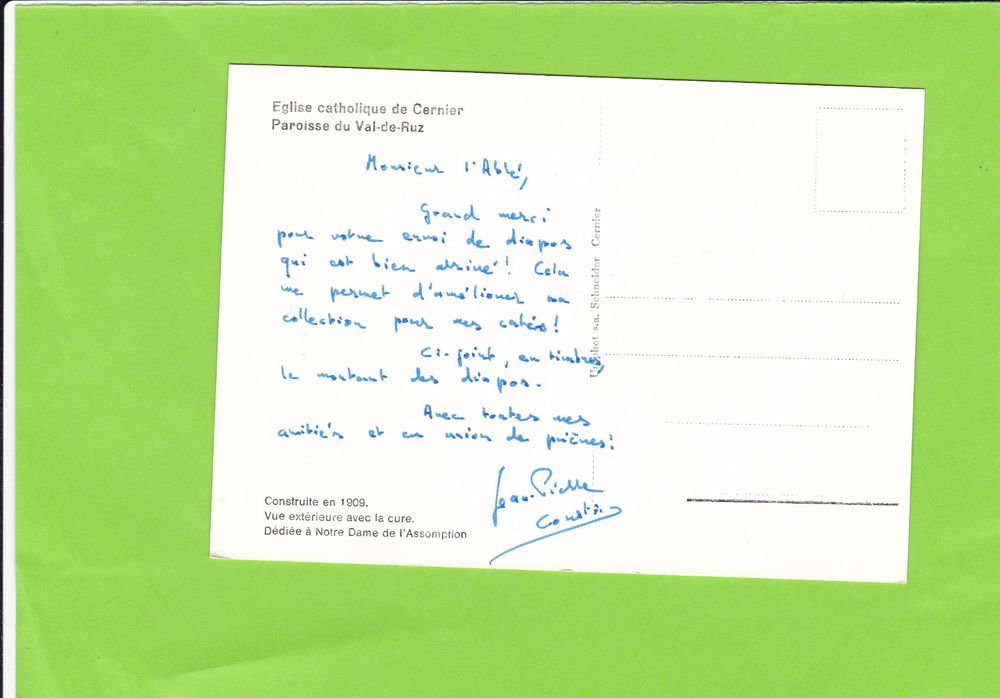 Eglise catholique de Cernier
Paroisse du Val-de-Ruz
Monsieur l'Abbé,
Grand merci
pour votre envoi de diapos
qui est bien arrivé! Cela
me permet d'améliorer ma
collection pour mes catés!
Ci-joint, en timbres,
le montant des diapos.
Avec toutes mes
amitiés et en union de prières!
Jean-Pierre
Construite en 1909.
Vue extérieure avec la cure.
Dédiée à Notre Dame de l'Assomption
s.a. Schneider Cernier